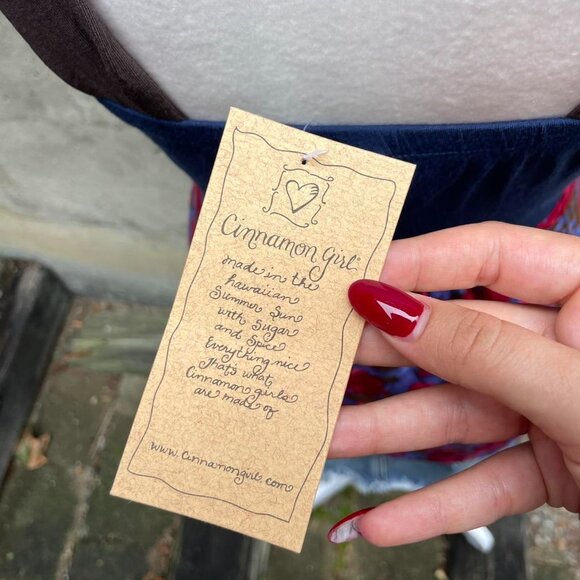 Cinnamon Girl
made in the
hawaiian
Summer Sun
with Sugar
and Spice
Everything nice
That's what
Cinnamon girls
are made of
www.cinnamongirl.com